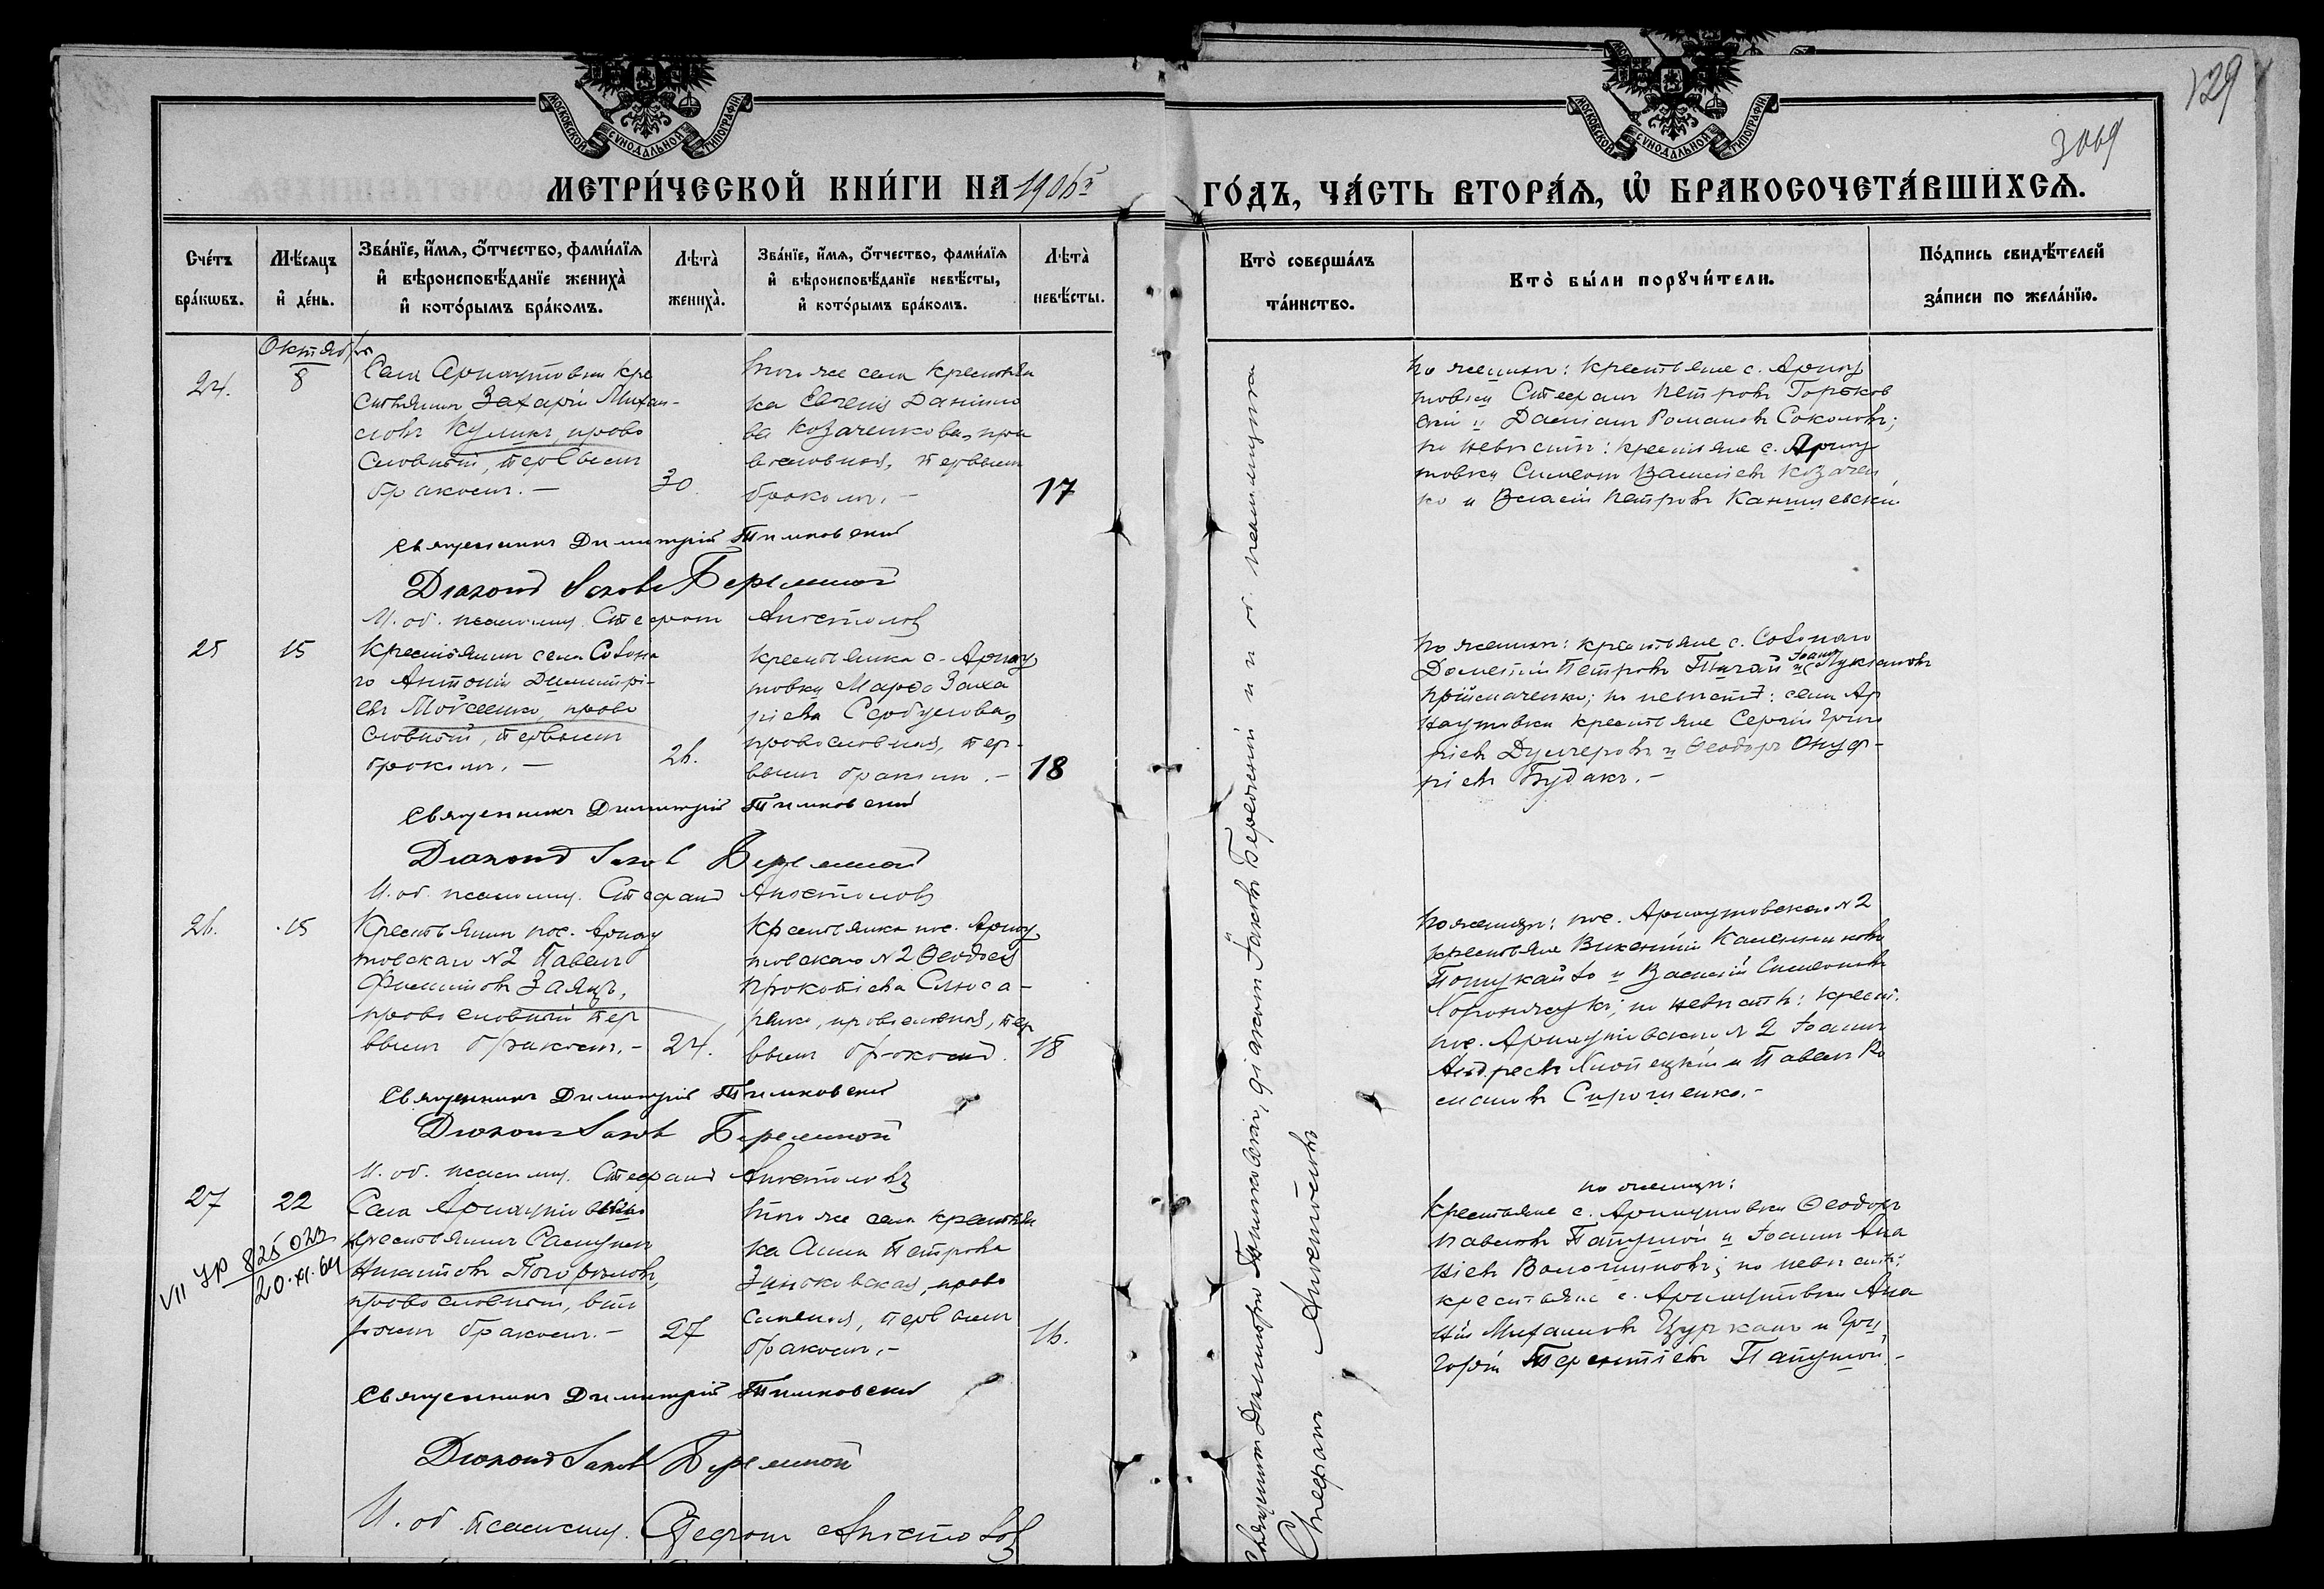 129
3069
МОСКОВСКОЙ СѴНОДАЛЬНОЙ ТИПОГРАФІИ
МОСКОВСКОЙ СѴНОДАЛЬНОЙ ТИПОГРАФІИ
МЕТРИ́ЧЕСКОЙ КНИ́ГИ НА 1906й
ГО́ДЪ, ЧА́СТЬ ВТОРА́Я, Ѡ БРАКОСОЧЕТА́ВШИХСЯ.
Сче́тъ бра́кωвъ.
Мѣ́сяцъ и де́нь.
Зва́нїе, и́мя, о́тчество, фами́лїя
и вѣроисповѣ́данїе жениха̀
и кото́рымъ бра́комъ.
Лѣта̀ жениха̀.
Зва́нїе, и́мя, о́тчество, фами́лїя
и вѣроисповѣ́данїе невѣ́сты,
и кото́рымъ бра́комъ.
Лѣта̀ невѣ́сты.
Кто̀ соверша́лъ та́инство.
Кто̀ бы́ли порꙋчи́тели.
По́дпись свидѣ́телей за́писи по жела́нїю.
Октября
24.
8
Села Арнаутовки кре
стьянинъ Захарій Михаи-
ловъ Кулишъ, право
славный, первымъ
бракомъ. —
30.
того же села крестьян
ка Евгенія Данило
ва Козаченкова, пра
вославная, первымъ
бракомъ. —
17
по женихѣ: крестьяне с. Арнау
товки Стефанъ Петровъ Горьков
скій и Даміанъ Романовъ Соколовъ;
по невѣстѣ: крестьяне с. Арнау
товки Симеонъ Василіевъ Козачен
ко и Власій Петровъ Канишевскій
Священникъ Димитрій Тимковскій
Діаконъ Іаковъ Бережной
И. об. псаломщ. Стефанъ Апостоловъ
25
15
Крестьянинъ села
го Антоній Димитрі-
евъ Мойсеенко, право
славный, первымъ
бракомъ. —
26.
крестьянка с. Арнау
товки Марѳа Заха
ріева Сербулова,
православная, пер-
вымъ бракомъ. —
18
по женихѣ: крестьяне с.
Дометій Петровъ Пичай и Іоаннъ Лукіановъ
Пріймаченко; по невѣстѣ: села Ар
наутовки крестьяне Сергій Григо
ріевъ Думчеровъ и Ѳеодоръ Онуф-
ріевъ Будакъ. —
Священникъ Димитрій Тимковскій
Діаконъ Іаковъ Бережной
И. об. псаломщ. Стефанъ Апостоловъ
26.
15
Крестьянинъ пос. Арнау
товскаго № 2 Павелъ
Филиповъ Заяцъ,
православный пер
вымъ бракомъ. —
24.
Крестьянка пос. Арнау
товскаго № 2 Ѳеодосія
Прокопіева Слюса-
ренко, православная, пер
вымъ бракомъ.
18
по женихѣ: пос. Арнаутовскаго № 2
крестьяне Викентій
и Василій Симеоновъ
по невѣстѣ: крест.
пос. Арнаутовскаго № 2 Іоаннъ
Андреевъ и Павелъ Ро
мановъ Сирошенко. —
Священникъ Димитрій Тимковскій
Діаконъ Іаковъ Бережной
И. об. псаломщ. Стефанъ Апостоловъ
27
22
VII УР 825 023
20.XI.64
Села Арнаутовки
крестьянинъ Самуилъ
Никитовъ Погорѣловъ,
православный, вто
рымъ бракомъ. —
27
того же села крестьян
ка Анна Петрова
Зинсковская, право
славная, первымъ
бракомъ. —
16.
по женихѣ:
крестьяне с. Арнаутовки Ѳеодоръ
Павловъ Патушой и Іоаннъ Ана
ніевъ Волошиновъ; по невѣстѣ:
крестьяне с. Арнаутовки Ана
ній Михаиловъ Цурканъ и Гри
горій Терентіевъ Патушой. —
Священникъ Димитрій Тимковскій
Діаконъ Іаковъ Бережной
И. об. псаломщ. Стефанъ Апостоловъ
Священникъ Димитрій Тимковскій, діаконъ Іаковъ Бережной и и. об. псаломщика
Стефанъ Апостоловъ